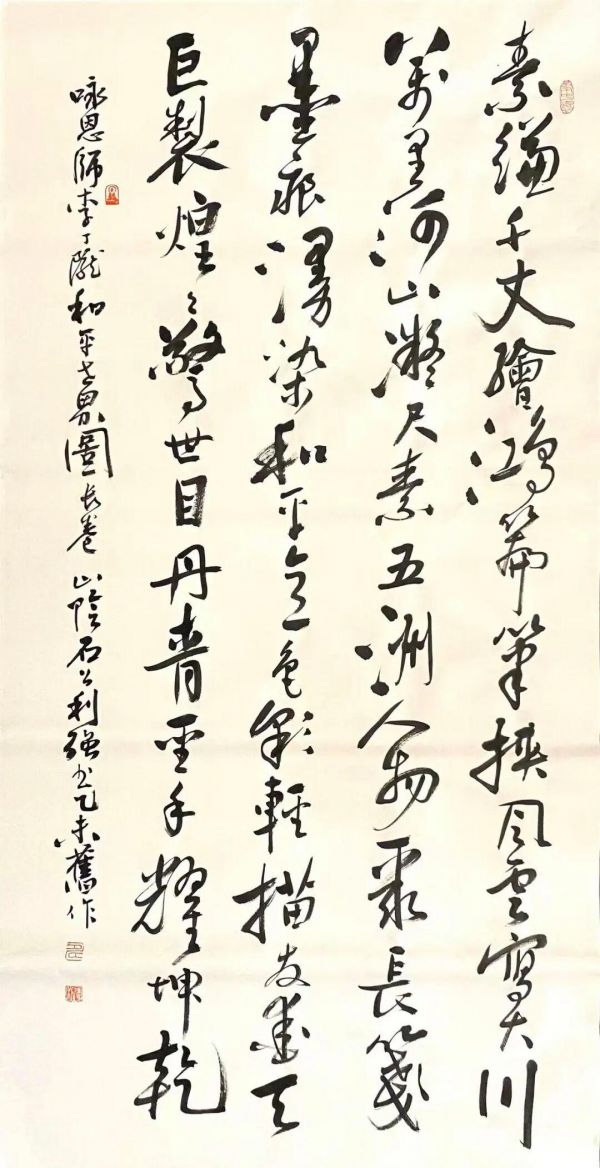 素縑千丈繪鴻篇筆挾風雲寫大川
萬里河山凝尺素五洲人物聚長箋
墨痕漫染和平意色彩輕描友愛天
巨製煌々驚世目丹青聖手耀坤乾
咏恩師李丁隴和平世界圖長卷 山陰石公利強書乙未舊作